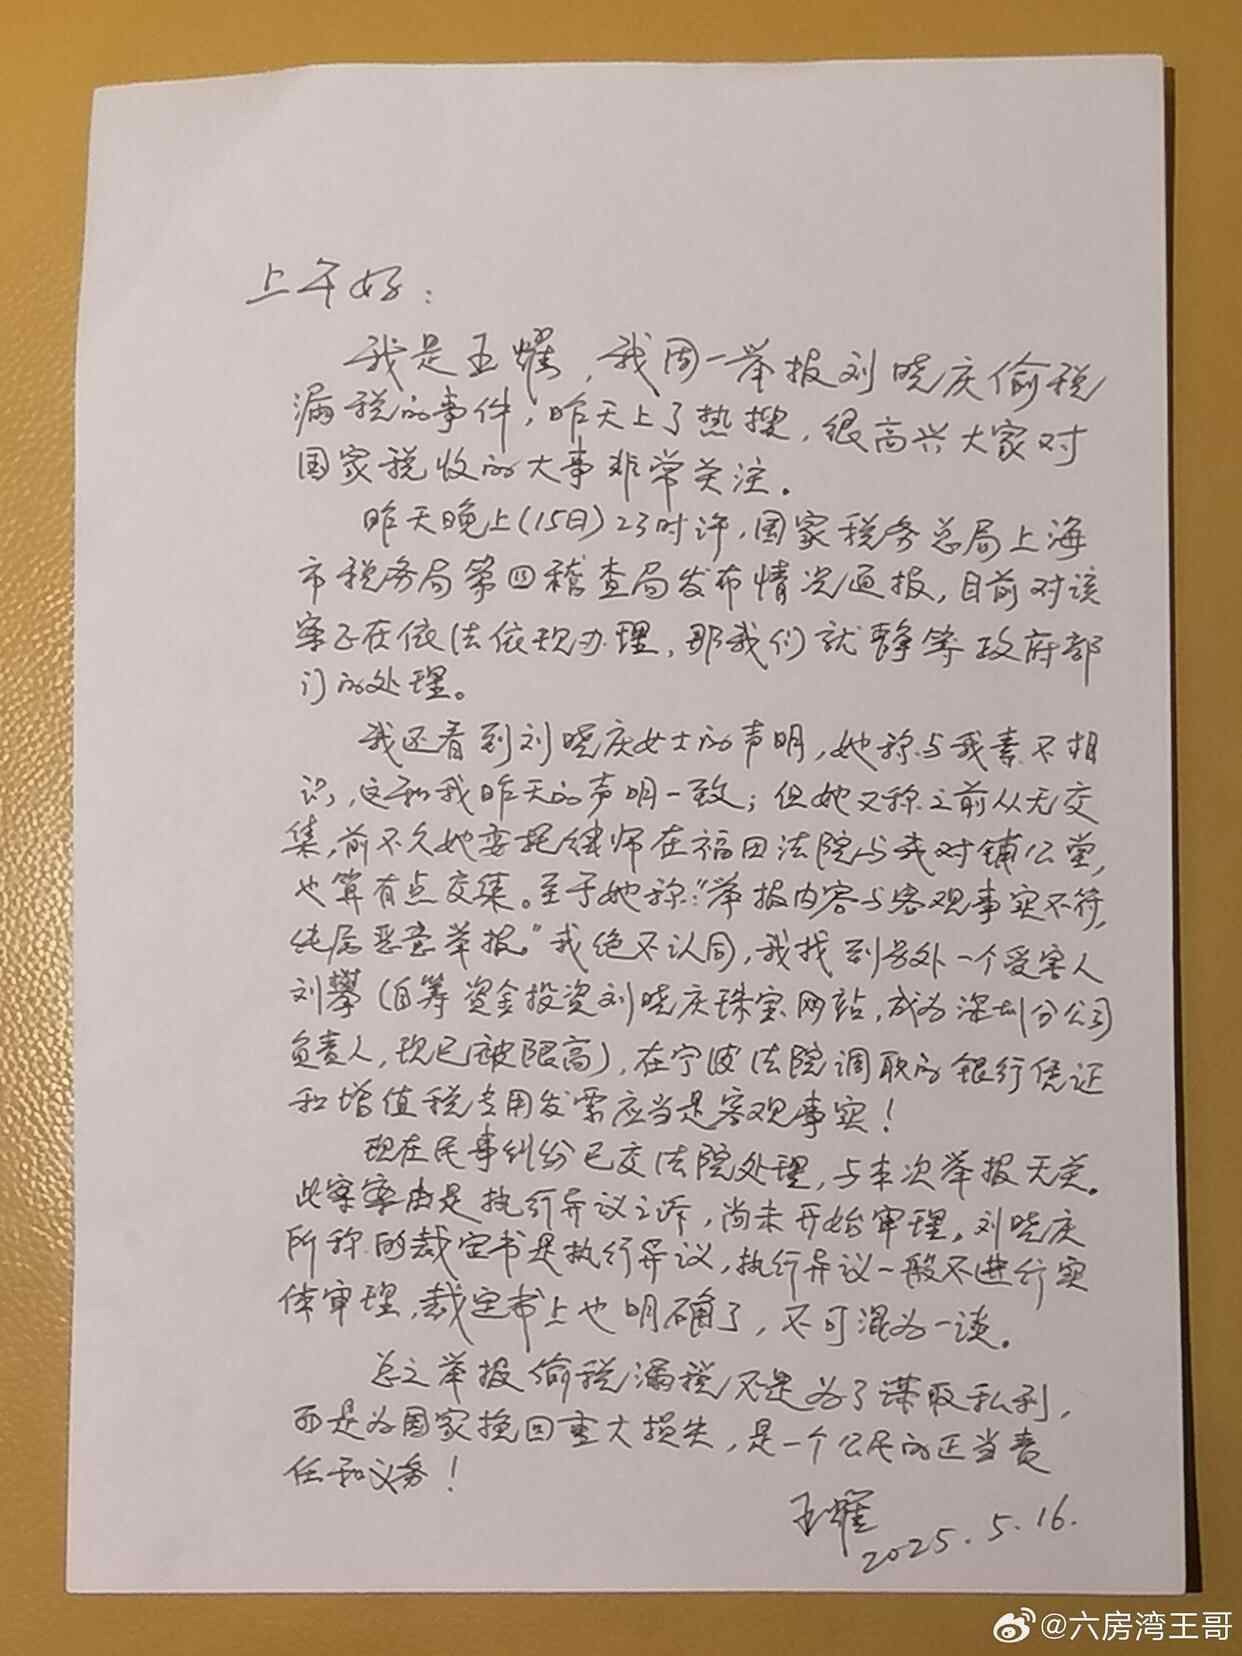 上午好：
我是王耀，我周一举报刘晓庆偷税
漏税的事件，昨天上了热搜，很高兴大家对
国家税收的大事非常关注。
昨天晚上(15日)23时许，国家税务总局上海
市税务局第四稽查局发布情况通报，目前对该
案子在依法依规办理，那我们就静等政府部
门的处理。
我还看到刘晓庆女士的声明，她称与我素不相
识，这和我昨天的声明一致；但她又称之前从无交
集，前不久她委托律师在福田法院与我对铺公堂，
也算有点交集。至于她称："举报内容与客观事实不符，
纯属恶意举报。"我绝不认同，我找到另外一个受害人
刘攀（自筹资金投资刘晓庆珠宝网站，成为深圳分公司
负责人，现已被限高），在宁波法院调取的银行凭证
和增值税专用发票应当是客观事实！
现在民事纠纷已交法院处理，与本次举报无关。
此案案由是执行异议之诉，尚未开始审理。刘晓庆
所称的裁定书是执行异议，执行异议一般不进行实
体审理，裁定书上也明确了，不可混为一谈。
总之举报偷税漏税不是为了谋取私利，
而是为国家挽回重大损失，是一个公民的正当责
任和义务！
王耀
2025.5.16.
@六房湾王哥